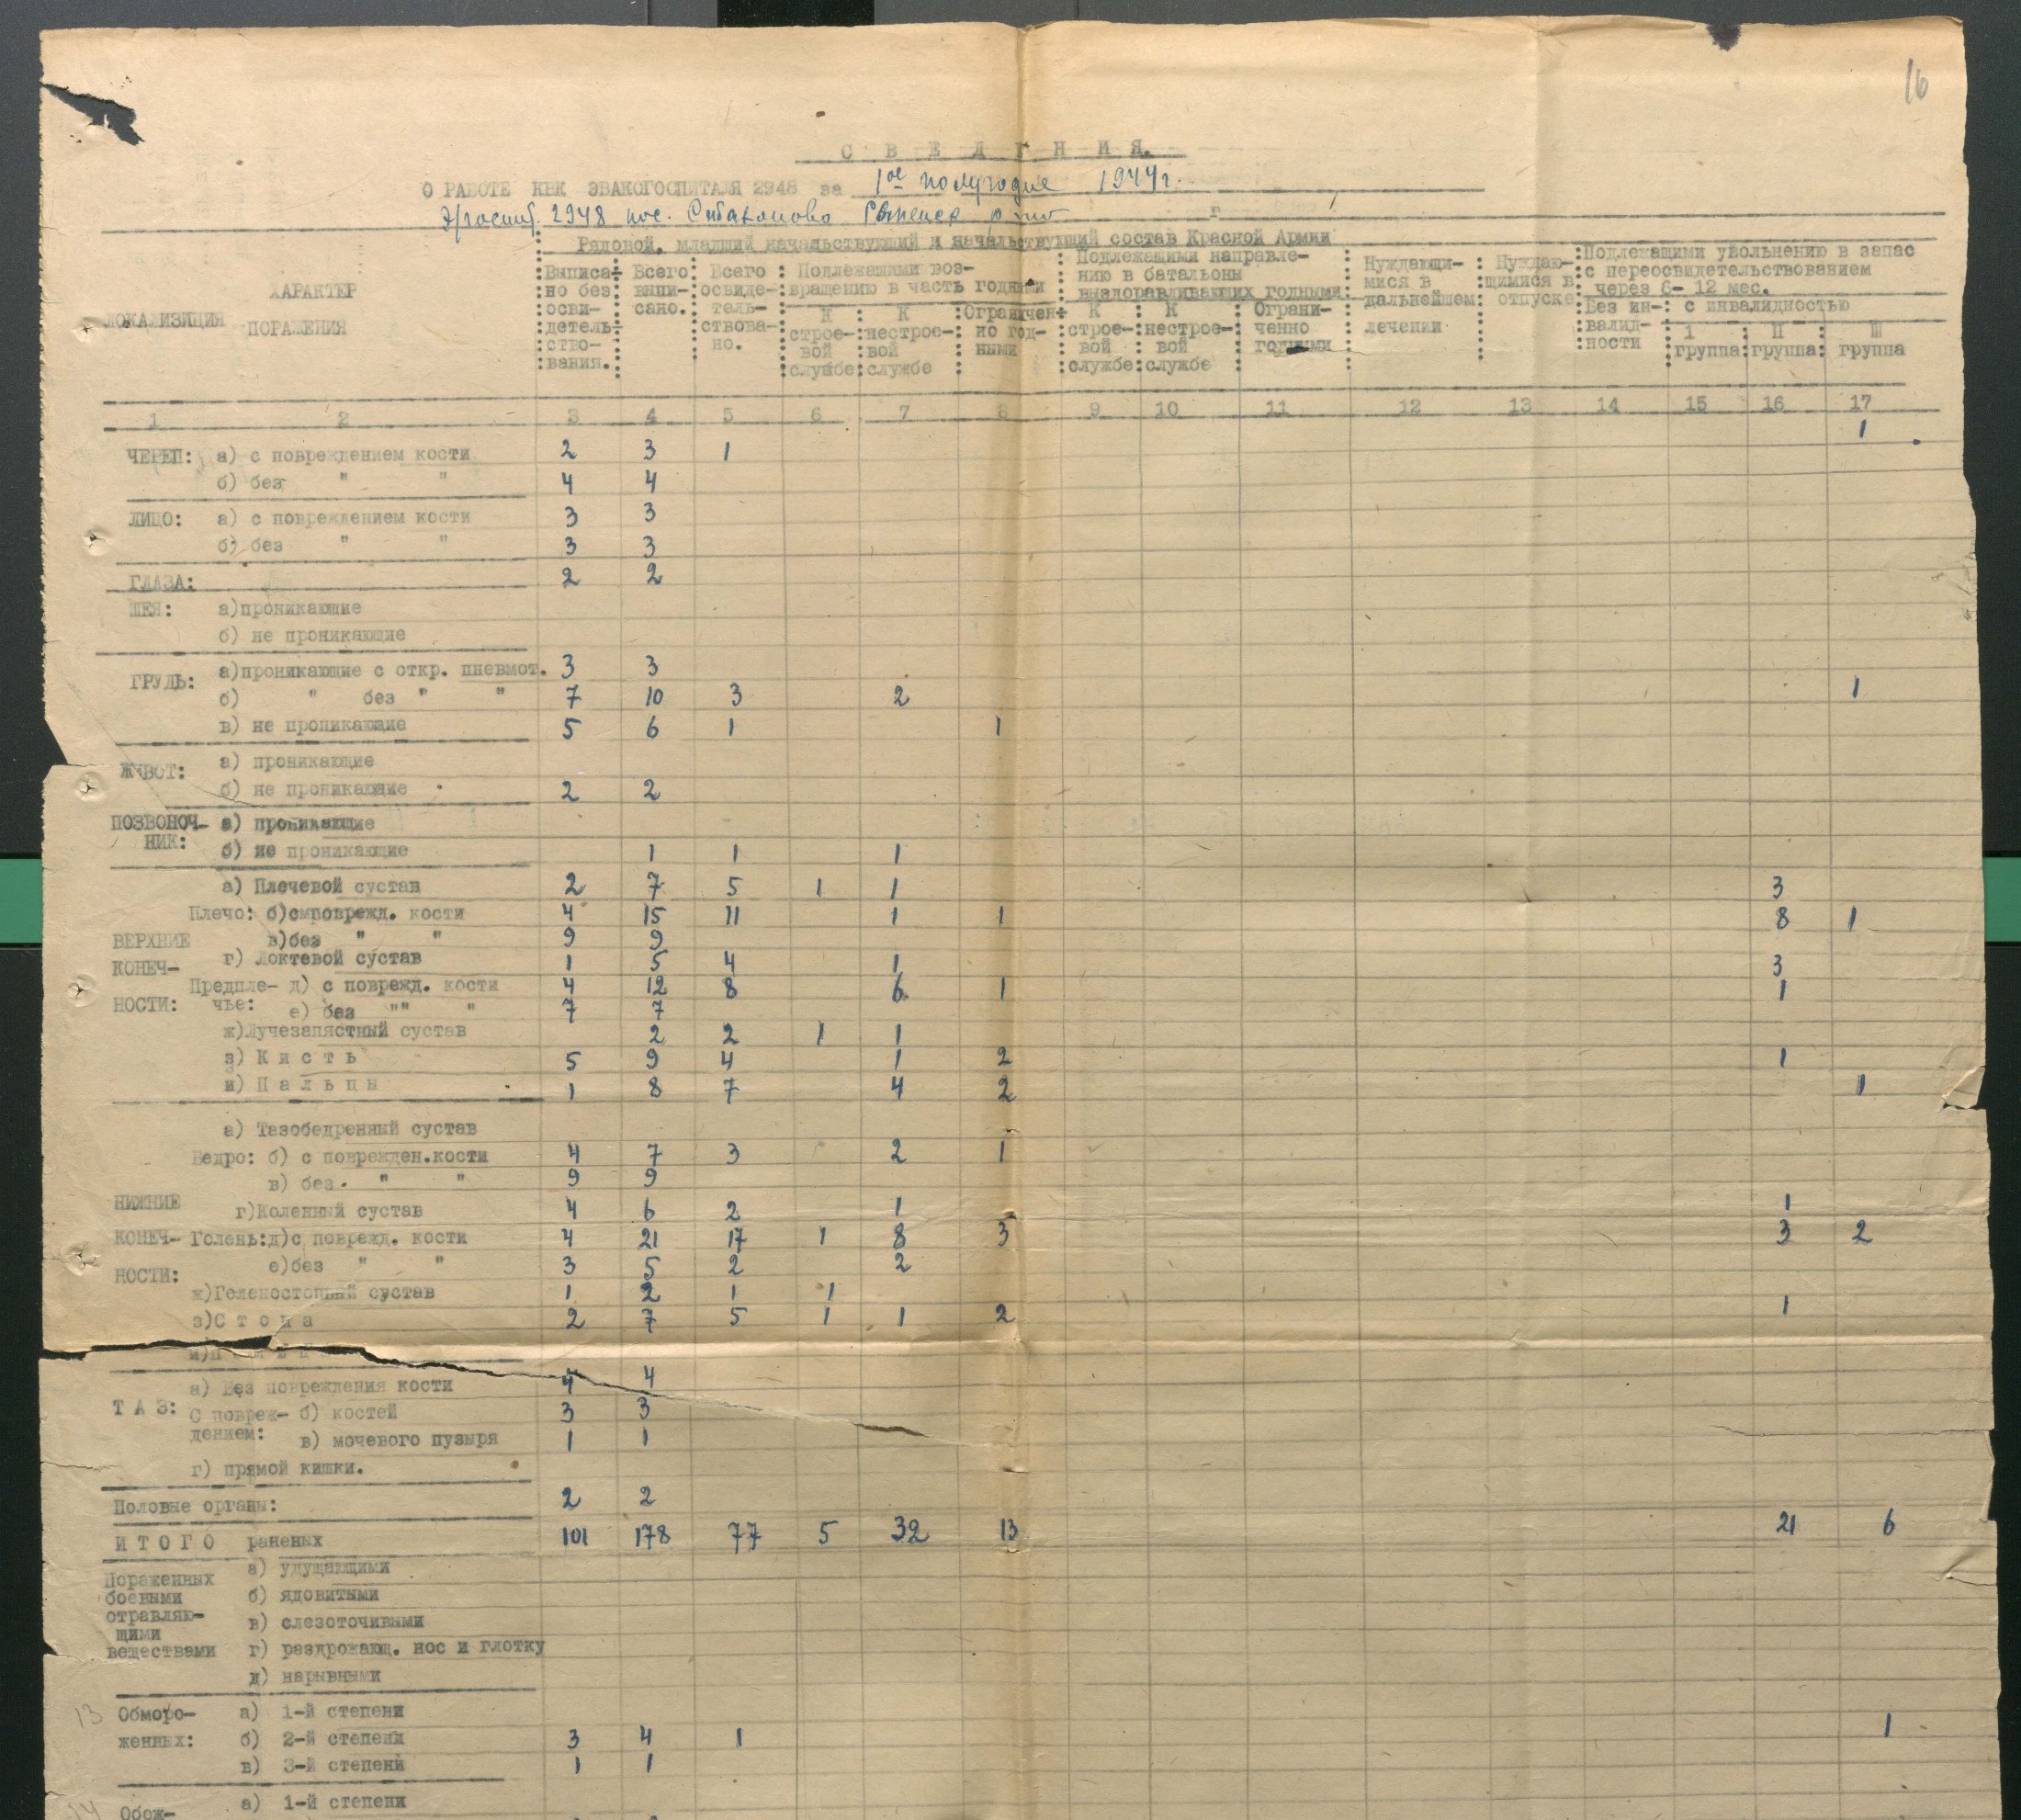 16
С В Е Д Е Н И Я.
О РАБОТЕ КВК ЭВАКОГОСПИТАЛЯ 2948 за 1ое полугодие 1944 г.
Э/госпит. 2948 пос. г
Рядовой, младший начальствующий и начальствующий состав Красной Армии
ЛОКАЛИЗИЦИЯ
ХАРАКТЕР ПОРАЖЕНИЯ
Выписано без освидетельствования.
Всего выписано.
Всего освидетельствовано.
Подлежащими возвращению в часть годными
К строевой службе
К нестроевой службе
Ограниченно годными
Подлежащими направлению в батальоны выздоравливающих годными
К строевой службе
К нестроевой службе
Ограниченно годными
Нуждающимися в дальнейшем лечении
Нуждающимися в отпуске
Подлежащими увольнению в запас с переосвидетельствованием через 6- 12 мес.
Без инвалидности
с инвалидностью
1 группа
П группа
Ш группа
1 2 3 4 5 6 7 8 9 10 11 12 13 14 15 16 17
ЧЕРЕП: а) с повреждением кости 2 3 1 1
б) без " " 4 4
ЛИЦО: а) с повреждением кости 3 3
б) без " " 3 3
ГЛАЗА: 2 2
ШЕЯ: а)проникающие
б) не проникающие
ГРУДЬ: а)проникающие с откр. пневмот. 3 3
б) " без " " 7 10 3 2 1
в) не проникающие 5 6 1 1
ЖИВОТ: а) проникающие
б) не проникающие 2 2
ПОЗВОНОЧ-НИК: а) проникающие
б) не проникающие 1 1 1
ВЕРХНИЕ КОНЕЧ-НОСТИ:
а) Плечевой сустав 2 7 5 1 1 3
Плечо: б)с поврежд. кости 4 15 11 1 1 8 1
в)без " " 9 9
г) Локтевой сустав 1 5 4 1 3
Предпле-чье: д) с поврежд. кости 4 12 8 6 1 1
е) без "" " 7 7
ж)Лучезапястный сустав 2 2 1 1
з) К и с т ь 5 9 4 1 2 1
и) П а л ь ц ы 1 8 7 4 2 1
НИЖНИЕ КОНЕЧ-НОСТИ:
а) Тазобедренный сустав
Бедро: б) с поврежден.кости 4 7 3 2 1
в) без. " " 9 9
г)Коленный сустав 4 6 2 1 1
Голень:д)с поврежд. кости 4 21 17 1 8 3 3 2
е)без " " 3 5 2 2
ж)Голеностопный сустав 1 2 1 1
з)С т о п а 2 7 5 1 1 2 1
Т А З: а) Без повреждения кости 4 4
С повреж-дением: б) костей 3 3
в) мочевого пузыря 1 1
г) прямой кишки.
Половые органы: 2 2
И Т О Г О раненых 101 178 77 5 32 13 21 6
Пораженных боевыми отравляю-щими веществами
а) удущающими
б) ядовитыми
в) слезоточивыми
г) раздрожающ. нос и глотку
д) нарывными
13
Обморо-женных: а) 1-й степени
б) 2-й степени 3 4 1 1
в) 3-й степени 1 1
14
Обож- а) 1-й степени